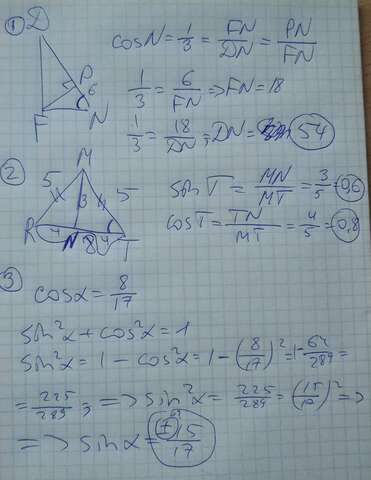 1
D
P
6
F N
cosN = 1/3 = FN/DN = PN/FN
1/3 = 6/FN => FN = 18
1/3 = 18/DN; DN = 54
2
M
5 3 5
R 4 N 4 T
8
sin T = MN/MT = 3/5 = 0,6
cos T = TN/MT = 4/5 = 0,8
3
cosα = 8/17
sin²α + cos²α = 1
sin²α = 1 - cos²α = 1 - (8/17)² = 1 - 64/289 =
= 225/289; => sin²α = 225/289 = (15/17)² =>
=> sinα = ± 15/17